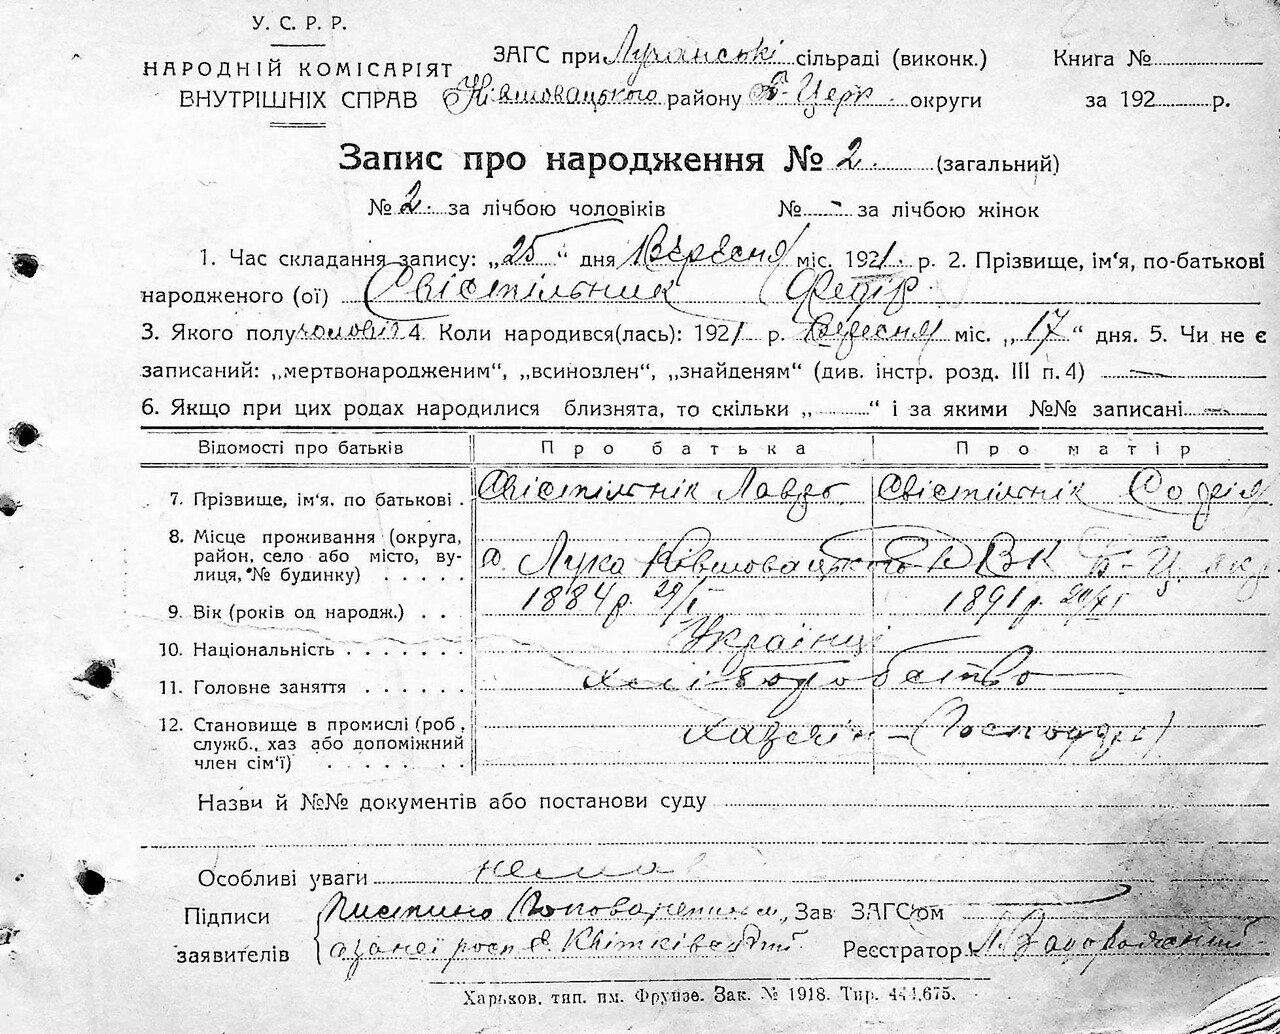 У. С. Р. Р.
НАРОДНІЙ КОМІСАРІЯТ
ВНУТРІШНІХ СПРАВ
ЗАГС при Лучанські сільраді (виконк.)
Книга №
Ківшовацького району Б-Церк. округи
за 192 р.
Запис про народження № 2. (загальний)
№ 2. за лічбою чоловіків № - за лічбою жінок
1. Час складання запису: „25" дня Вересня міс. 1921. р. 2. Прізвище, ім'я, по-батькові
народженого (ої) Свістільник Федір
3. Якого полу чоловіч 4. Коли народився(лась): 1921 р. Вересня міс. „17" дня. 5. Чи не є
записаний: „мертвонародженим", „всиновлен", „знайденям" (див. інстр. розд. III п. 4) —
6. Якщо при цих родах народилися близнята, то скільки „ " і за якими №№ записані —
Відомості про батьків Про батька Про матір
7. Прізвище, ім'я. по батькові . Свістільнік Лавро Свістільнік Софія
8. Місце проживання (округа,
район, село або місто, ву-
лиця, № будинку) . . . . . с. Лука Ківшовацького РВК Б-Ц. окр.
9. Вік (років од народж.) . . 1884 р. 1891 р.
10. Національність . . . . . . . Українці
11. Головне заняття . . . . . . хліборобство
12. Становище в промислі (роб.,
служб., хаз або допоміжний
член сім'ї) . . . . . . . хазяїн – (Господар)
Назви й №№ документів або постанови суду
Особливі уваги нема
Підписи
заявителів
Зав ЗАГСом
Реєстратор
Харьков, тип. им. Фрунзе. Зак. № 1918. Тир. 441.675.